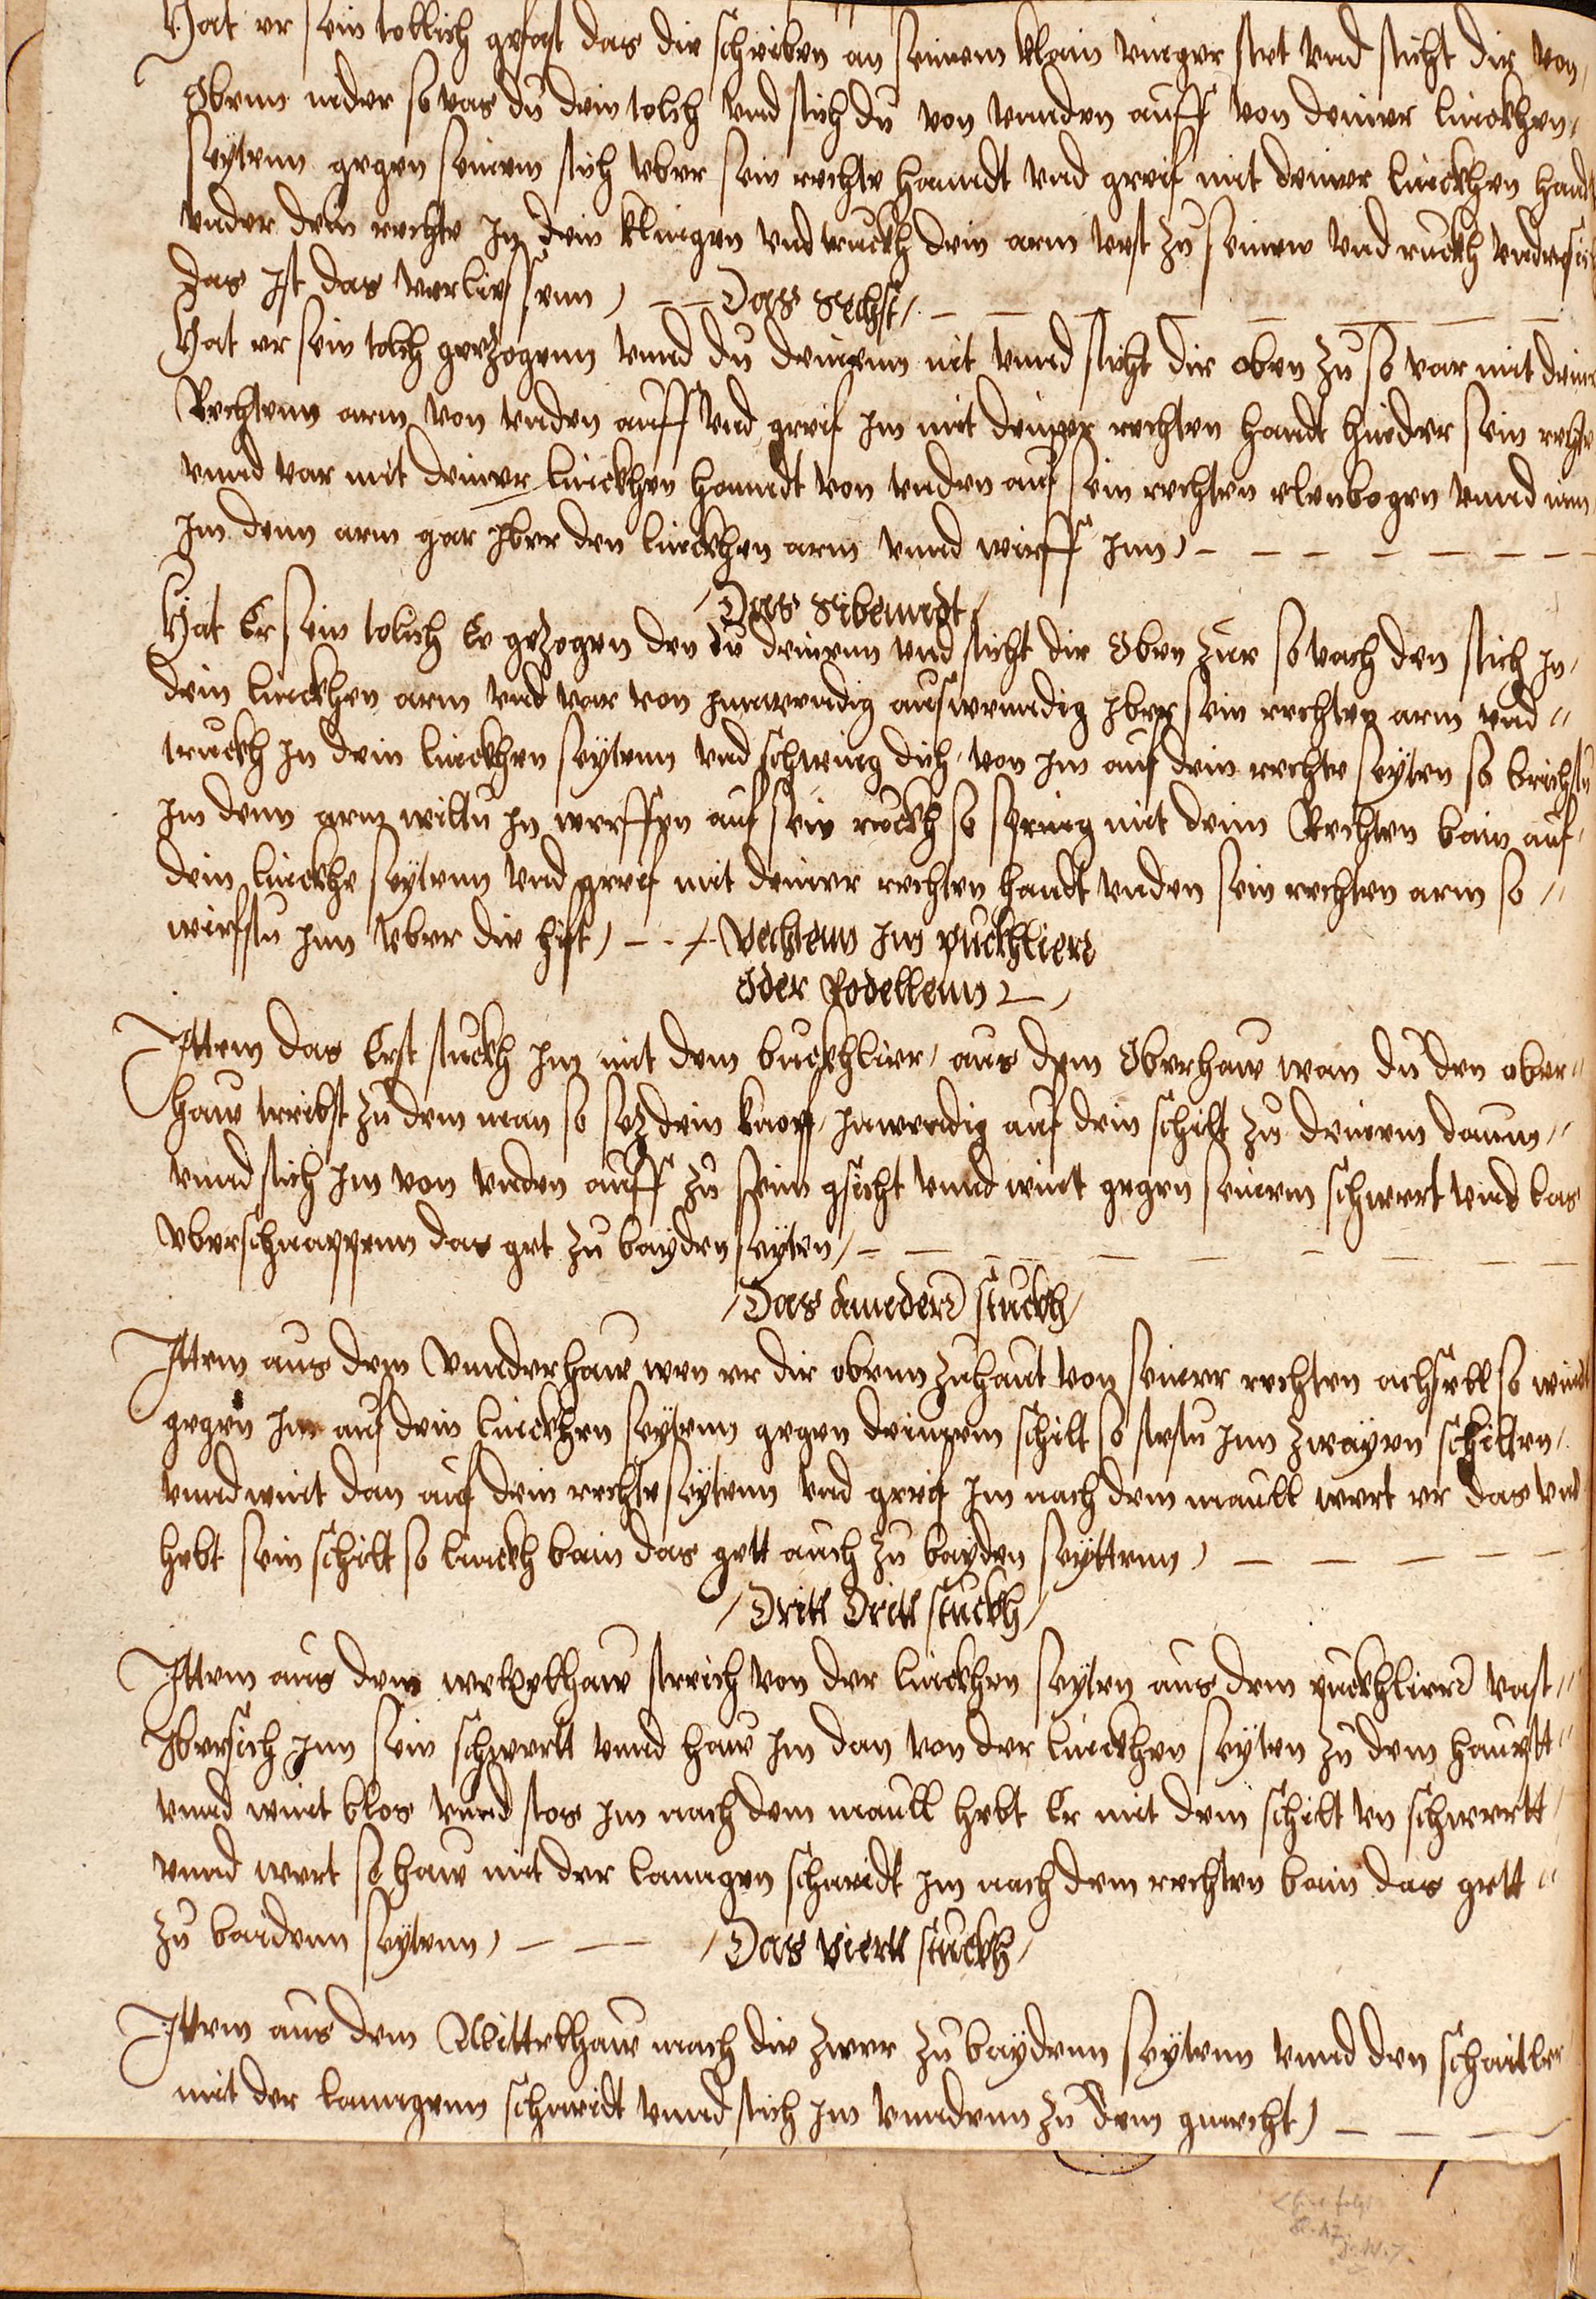 Hat er sein tollich gefast das die schreiben an seinem klain vinger stet vnd sticht dir von
Obenn nider so vas du dein tolch vnd stich du von vnnden auff von deiner linckhen
seyttenn gegen seinem stich vber sein rechte hanndt vnd greif mit deiner linckhen handt
vnder dein rechte In dein klingen vnd truckh dein arm vest zu seinem vnd ruckh vndersich
das Ist das verliessenn) Das Sechst
Hat er sein tolch gezogenn vnnd du deinenn nit vnnd sticht dir oben zu so var mit deim
Rechtenn arm von vnden auff vnd greif Im mit deiner rechten handt hinder sein rechte
vnnd var mit deiner linckhen hanndt von vnden auf sein rechten elenbogen vnnd nim
Im denn arm gar Iber den linckhen arm vnnd wirff Inn)
Das Sibenndt
Hat Er sein tolich Ee gezogen den du deinenn vnd sticht dir Oben Zue so vach den stich In
dein linckhen arm vnd var von Innwendig auswenndig Iber sein rechten arm vnd
truckh In dein linckhen seyttenn vnd schwing dich von Im auf dein rechte seyten so brichstu
Im denn arm wiltu In werffen auf sein ruckh so spring mit deim Rechten bain auf
dein linckhe seyttenn vnd greif mit deiner rechten handt vnden sein rechten arm so
wirfstu Inn vber die hift) Vechtenn Im puckhlier
Oder Rodellenn
Ittem das Erst stuckh Im mit dem buckhlier aus dem Oberhaw wan du den ober
haw treibst zu dem man so sez dein knopf Inwendig auf dein schilt zu deinem daum
vnnd stich Im von vnden auff zu seim gsicht vnnd wint gegen seinem schwert vnd las
vberschnappenn das get zu bayden seyten
Das annder stuckh
Ittem aus dem Vnnderhaw wen er dir obenn Zuhaut von seiner rechten achsell so wint
gegen Im auf dein linckhen seyttenn gegen deinem schilt so stestu Inn zwayen schilten
vnnd wint dan auf dein rechte seyttenn vnd greif Im nach dem maull wert er das vnd
hebt sein schilt so linckh bain das gett auch zu bayden seyttenn)
Dritt Dritt stuckh
Ittem aus dem wekelhaw streich von der linckhen seyten aus dem puckhlier vast
Ibersich Inn sein schwertt vnnd haw Im dan von der linckhen seyten zu dem haupt
vnnd wint blos vnnd stos Im nach dem maull hebt Er mit dem schilt vn schwertt
vnnd wert so haw mit der lanngen schneidt Im nach dem rechten bain das gett
zu baidenn seyttenn) Das Viertt stuckh
Ittem aus dem Mittelhaw mach die zwer zu baydenn seyttenn vnnd den schaitler
mit der lanngenn schneidt vnnd stich Im vnndenn zu dem gmecht)